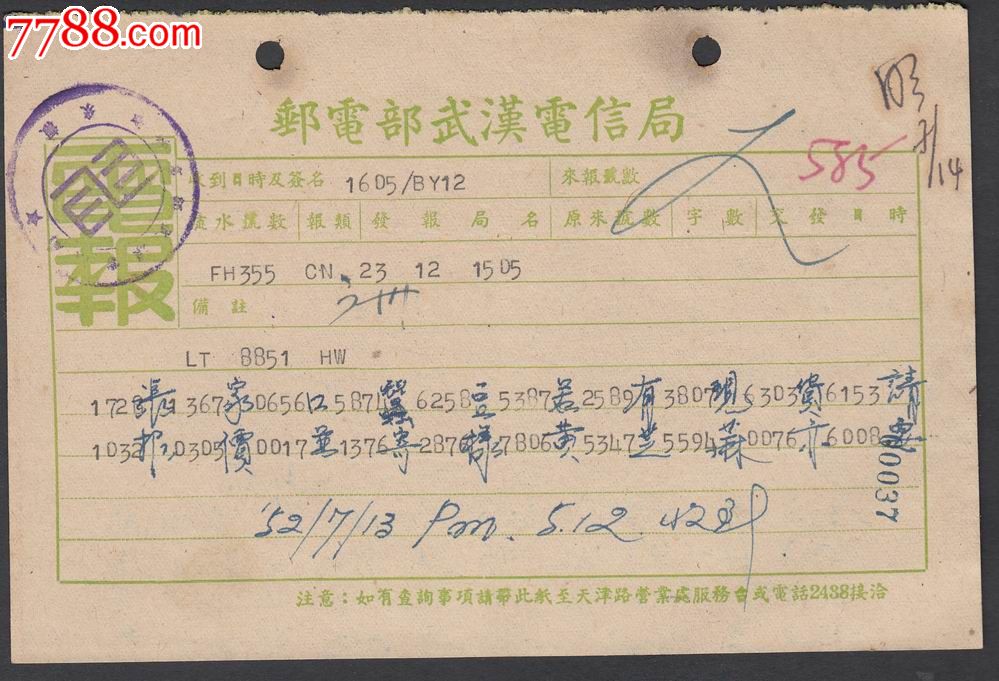 7788.com
明
7/14
郵電部武漢電信局
電報
收到日時及簽名 1605/BY12 來報號數 585
流水號數 報類 發報局名 原來號數 字數 交發日時
FH355 CN 23 12 1505
備註
LT 8851 HW
1728張 1367家 0656口 5871蠶 6258豆 5387若 2589有 3807現 6303貨 6153請
1032邦 0303價 0017並 1376寄 2876樣 7806黄 5347芝 5594蔴 0076亦 6008要
00037
'52/7/13 Pm. 5.12
注意：如有查詢事項請帶此紙至天津路營業處服務台或電話2438接洽